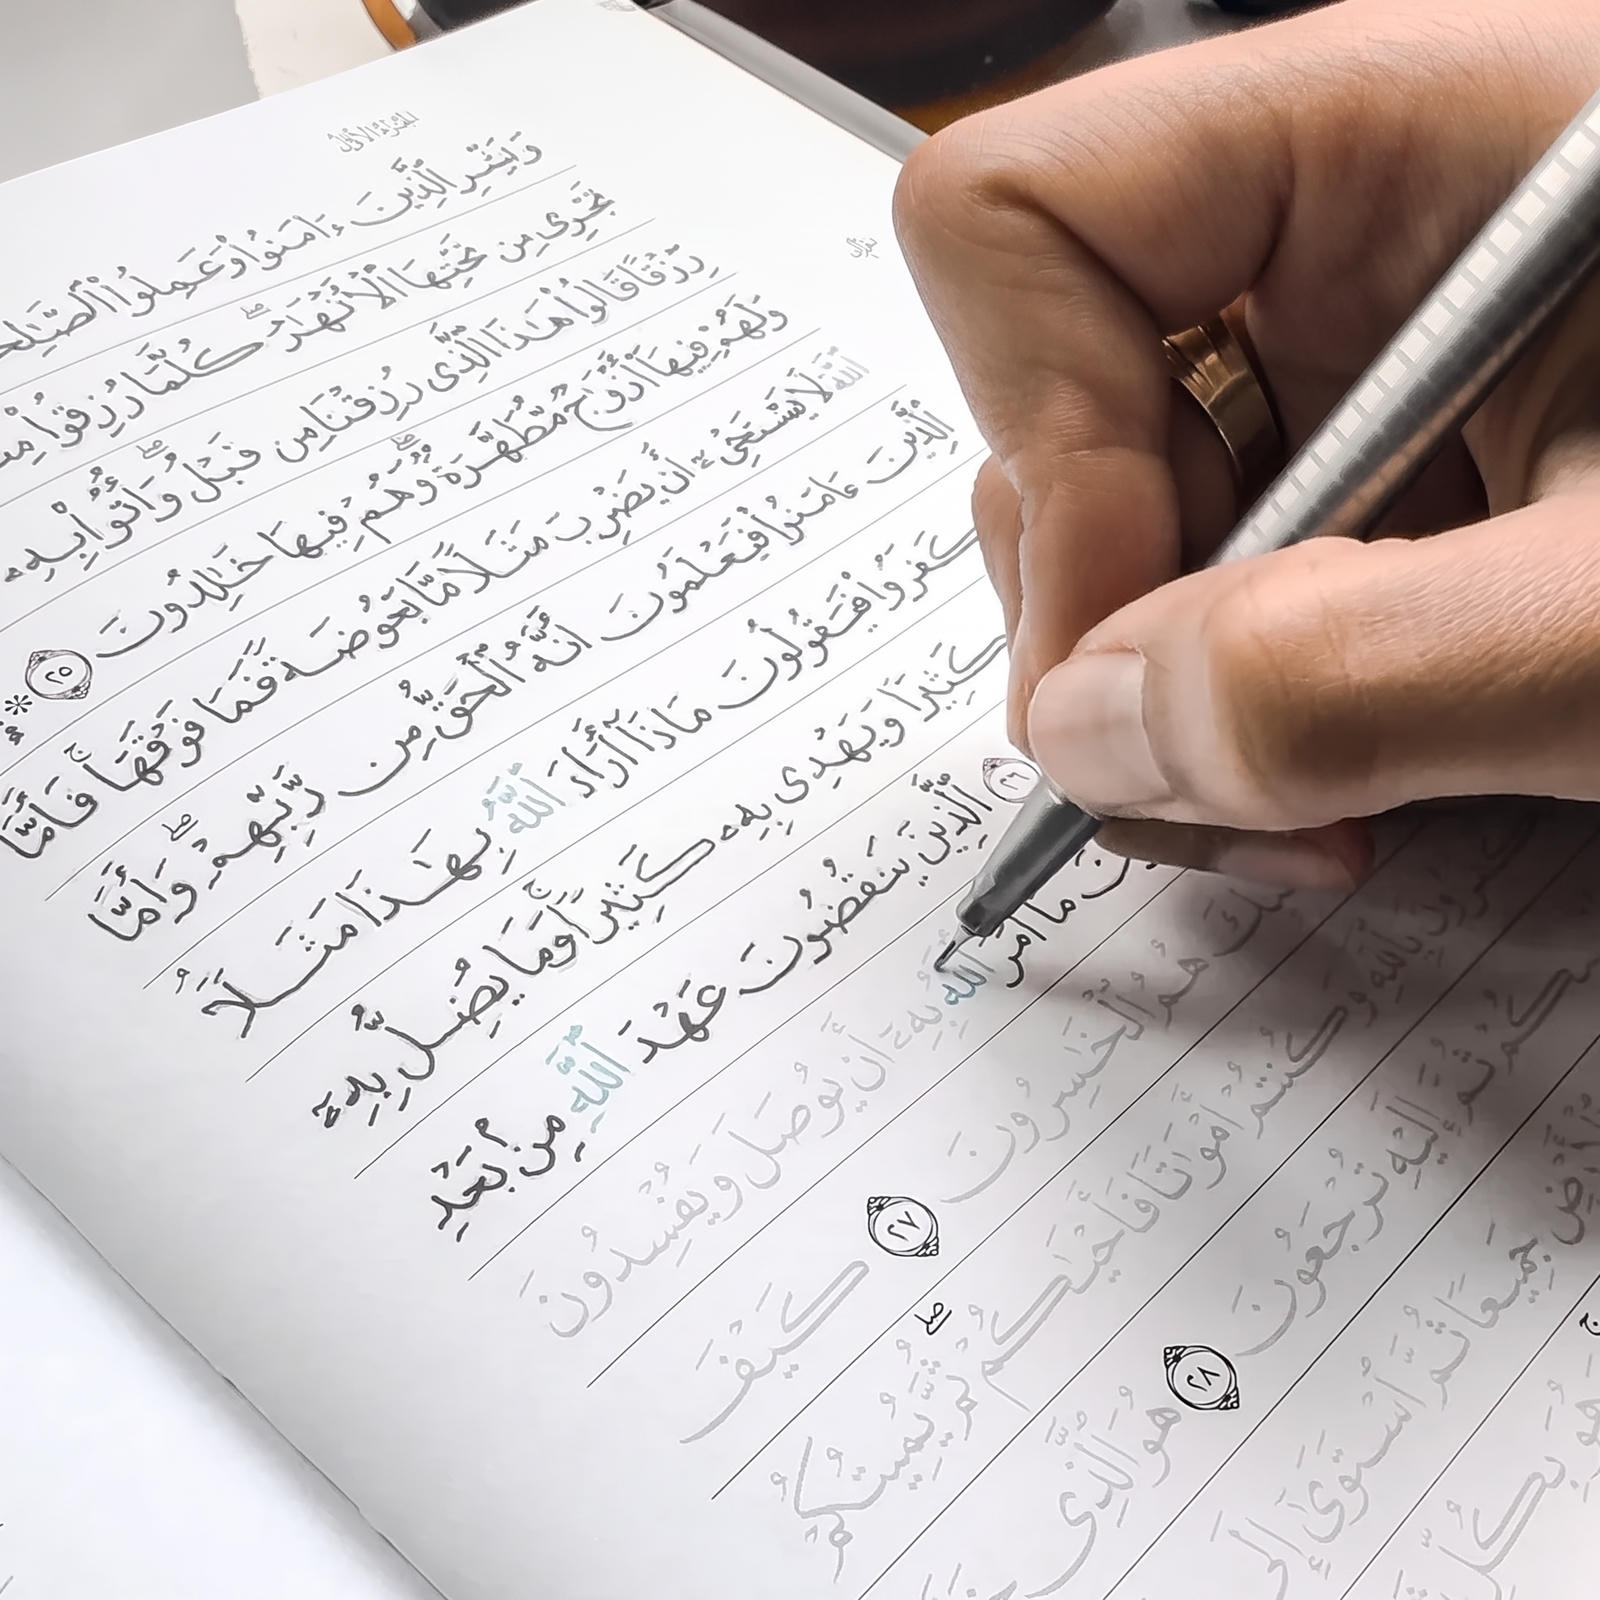 الجزء الأول
وَبَشِّرِ ٱلَّذِينَ ءَامَنُوا۟ وَعَمِلُوا۟ ٱلصَّٰلِحَ
تَجْرِى مِن تَحْتِهَا ٱلْأَنْهَٰرُ ۖ كُلَّمَا رُزِقُوا۟ مِنْ
رِّزْقًا قَالُوا۟ هَٰذَا ٱلَّذِى رُزِقْنَا مِن قَبْلُ ۖ وَأُتُوا۟ بِهِۦ
وَلَهُمْ فِيهَآ أَزْوَٰجٌ مُّطَهَّرَةٌ ۖ وَهُمْ فِيهَا خَٰلِدُونَ ٢٥ *
ٱللَّهَ لَا يَسْتَحْىِۦٓ أَن يَضْرِبَ مَثَلًا مَّا بَعُوضَةً فَمَا فَوْقَهَا ۚ فَأَمَّا
ٱلَّذِينَ ءَامَنُوا۟ فَيَعْلَمُونَ أَنَّهُ ٱلْحَقُّ مِن رَّبِّهِمْ ۖ وَأَمَّا
كَفَرُوا۟ فَيَقُولُونَ مَاذَآ أَرَادَ ٱللَّهُ بِهَٰذَا مَثَلًا ۘ
كَثِيرًا وَيَهْدِى بِهِۦ كَثِيرًا ۚ وَمَا يُضِلُّ بِهِۦٓ
٢٦ ٱلَّذِينَ يَنقُضُونَ عَهْدَ ٱللَّهِ مِنۢ بَعْدِ
ونَ مَآ أَمَرَ ٱللَّهُ بِهِۦٓ أَن يُوصَلَ وَيُفْسِدُونَ
ئِكَ هُمُ ٱلْخَٰسِرُونَ ٢٧ كَيْفَ
تَكْفُرُونَ بِٱللَّهِ وَكُنتُمْ أَمْوَٰتًا فَأَحْيَٰكُمْ ۖ ثُمَّ يُمِيتُكُمْ
كُمْ ثُمَّ إِلَيْهِ تُرْجَعُونَ ٢٨ هُوَ ٱلَّذِى
ٱلْأَرْضِ جَمِيعًا ثُمَّ ٱسْتَوَىٰٓ إِلَى
وَهُوَ بِكُلِّ